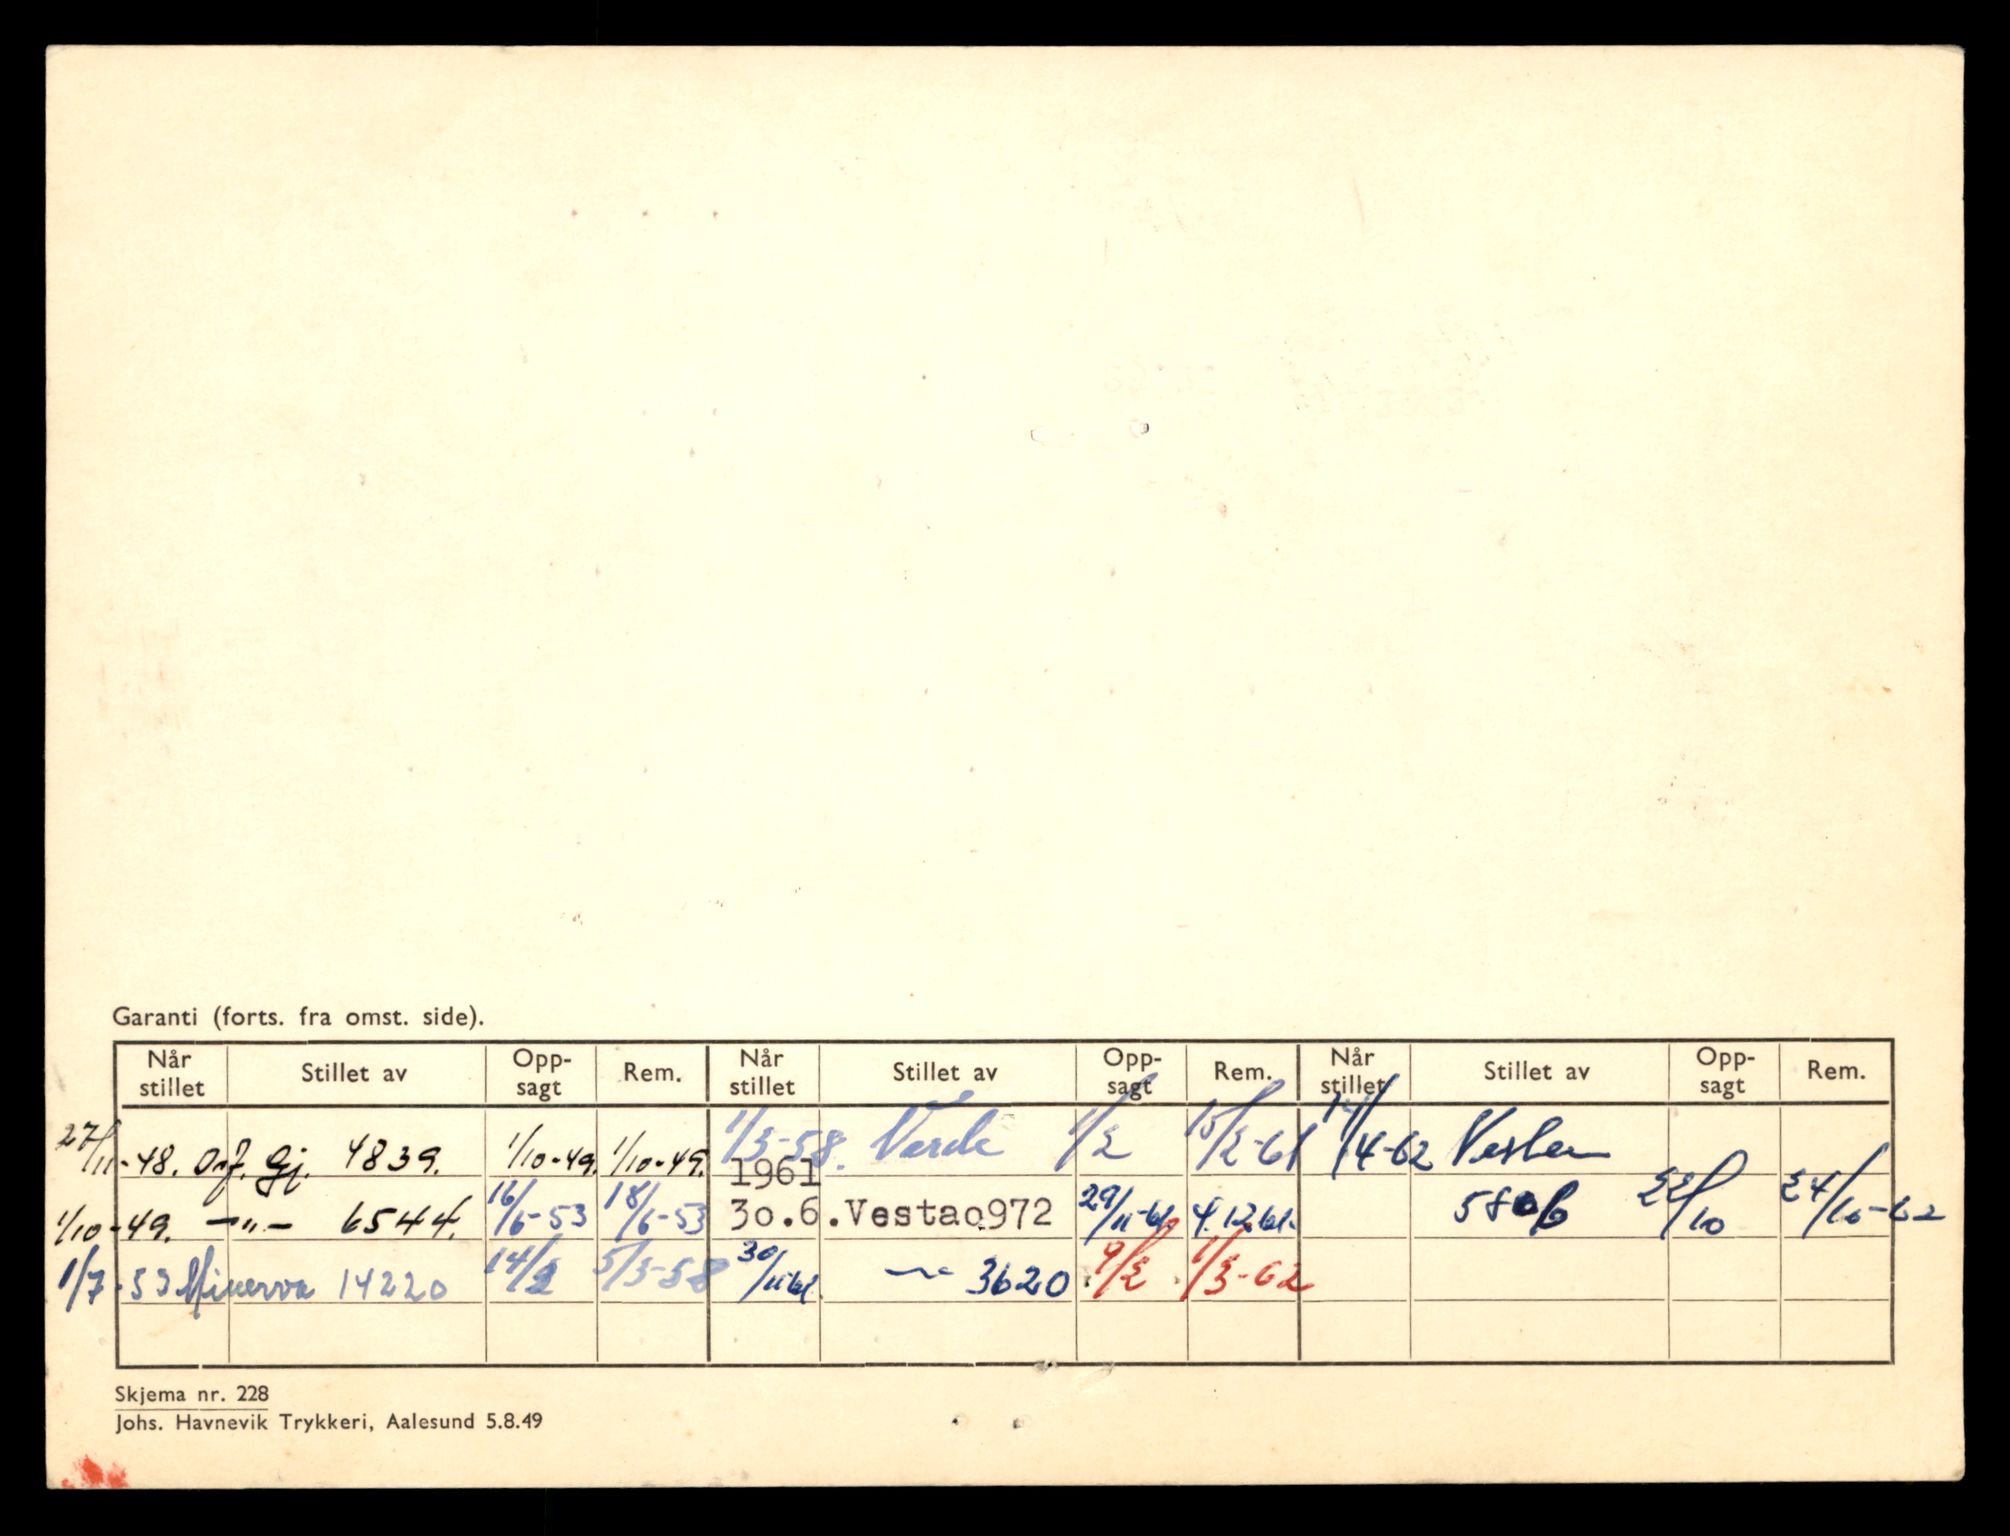 Garanti (forts. fra omst. side).
Når stillet Stillet av Opp-sagt Rem. Når stillet Stillet av Opp-sagt Rem. Når stillet Stillet av Opp-sagt Rem.
27/11-48. Gj. 4839. 1/10-49. 1/10-49. 1/3-58. 1/2 15/2-61 /4-62
1961
1/10-49. -"- 6544. 16/6-53 18/6-53 30.6. Vesta 0972 29/11-61 4.12.61. 5806 22/10 24/10-62
1/7-53 Minerva 14220 14/2 5/3-58 30/11 61 3620 9/2 1/3-62
Skjema nr. 228
Johs. Havnevik Trykkeri, Aalesund 5.8.49